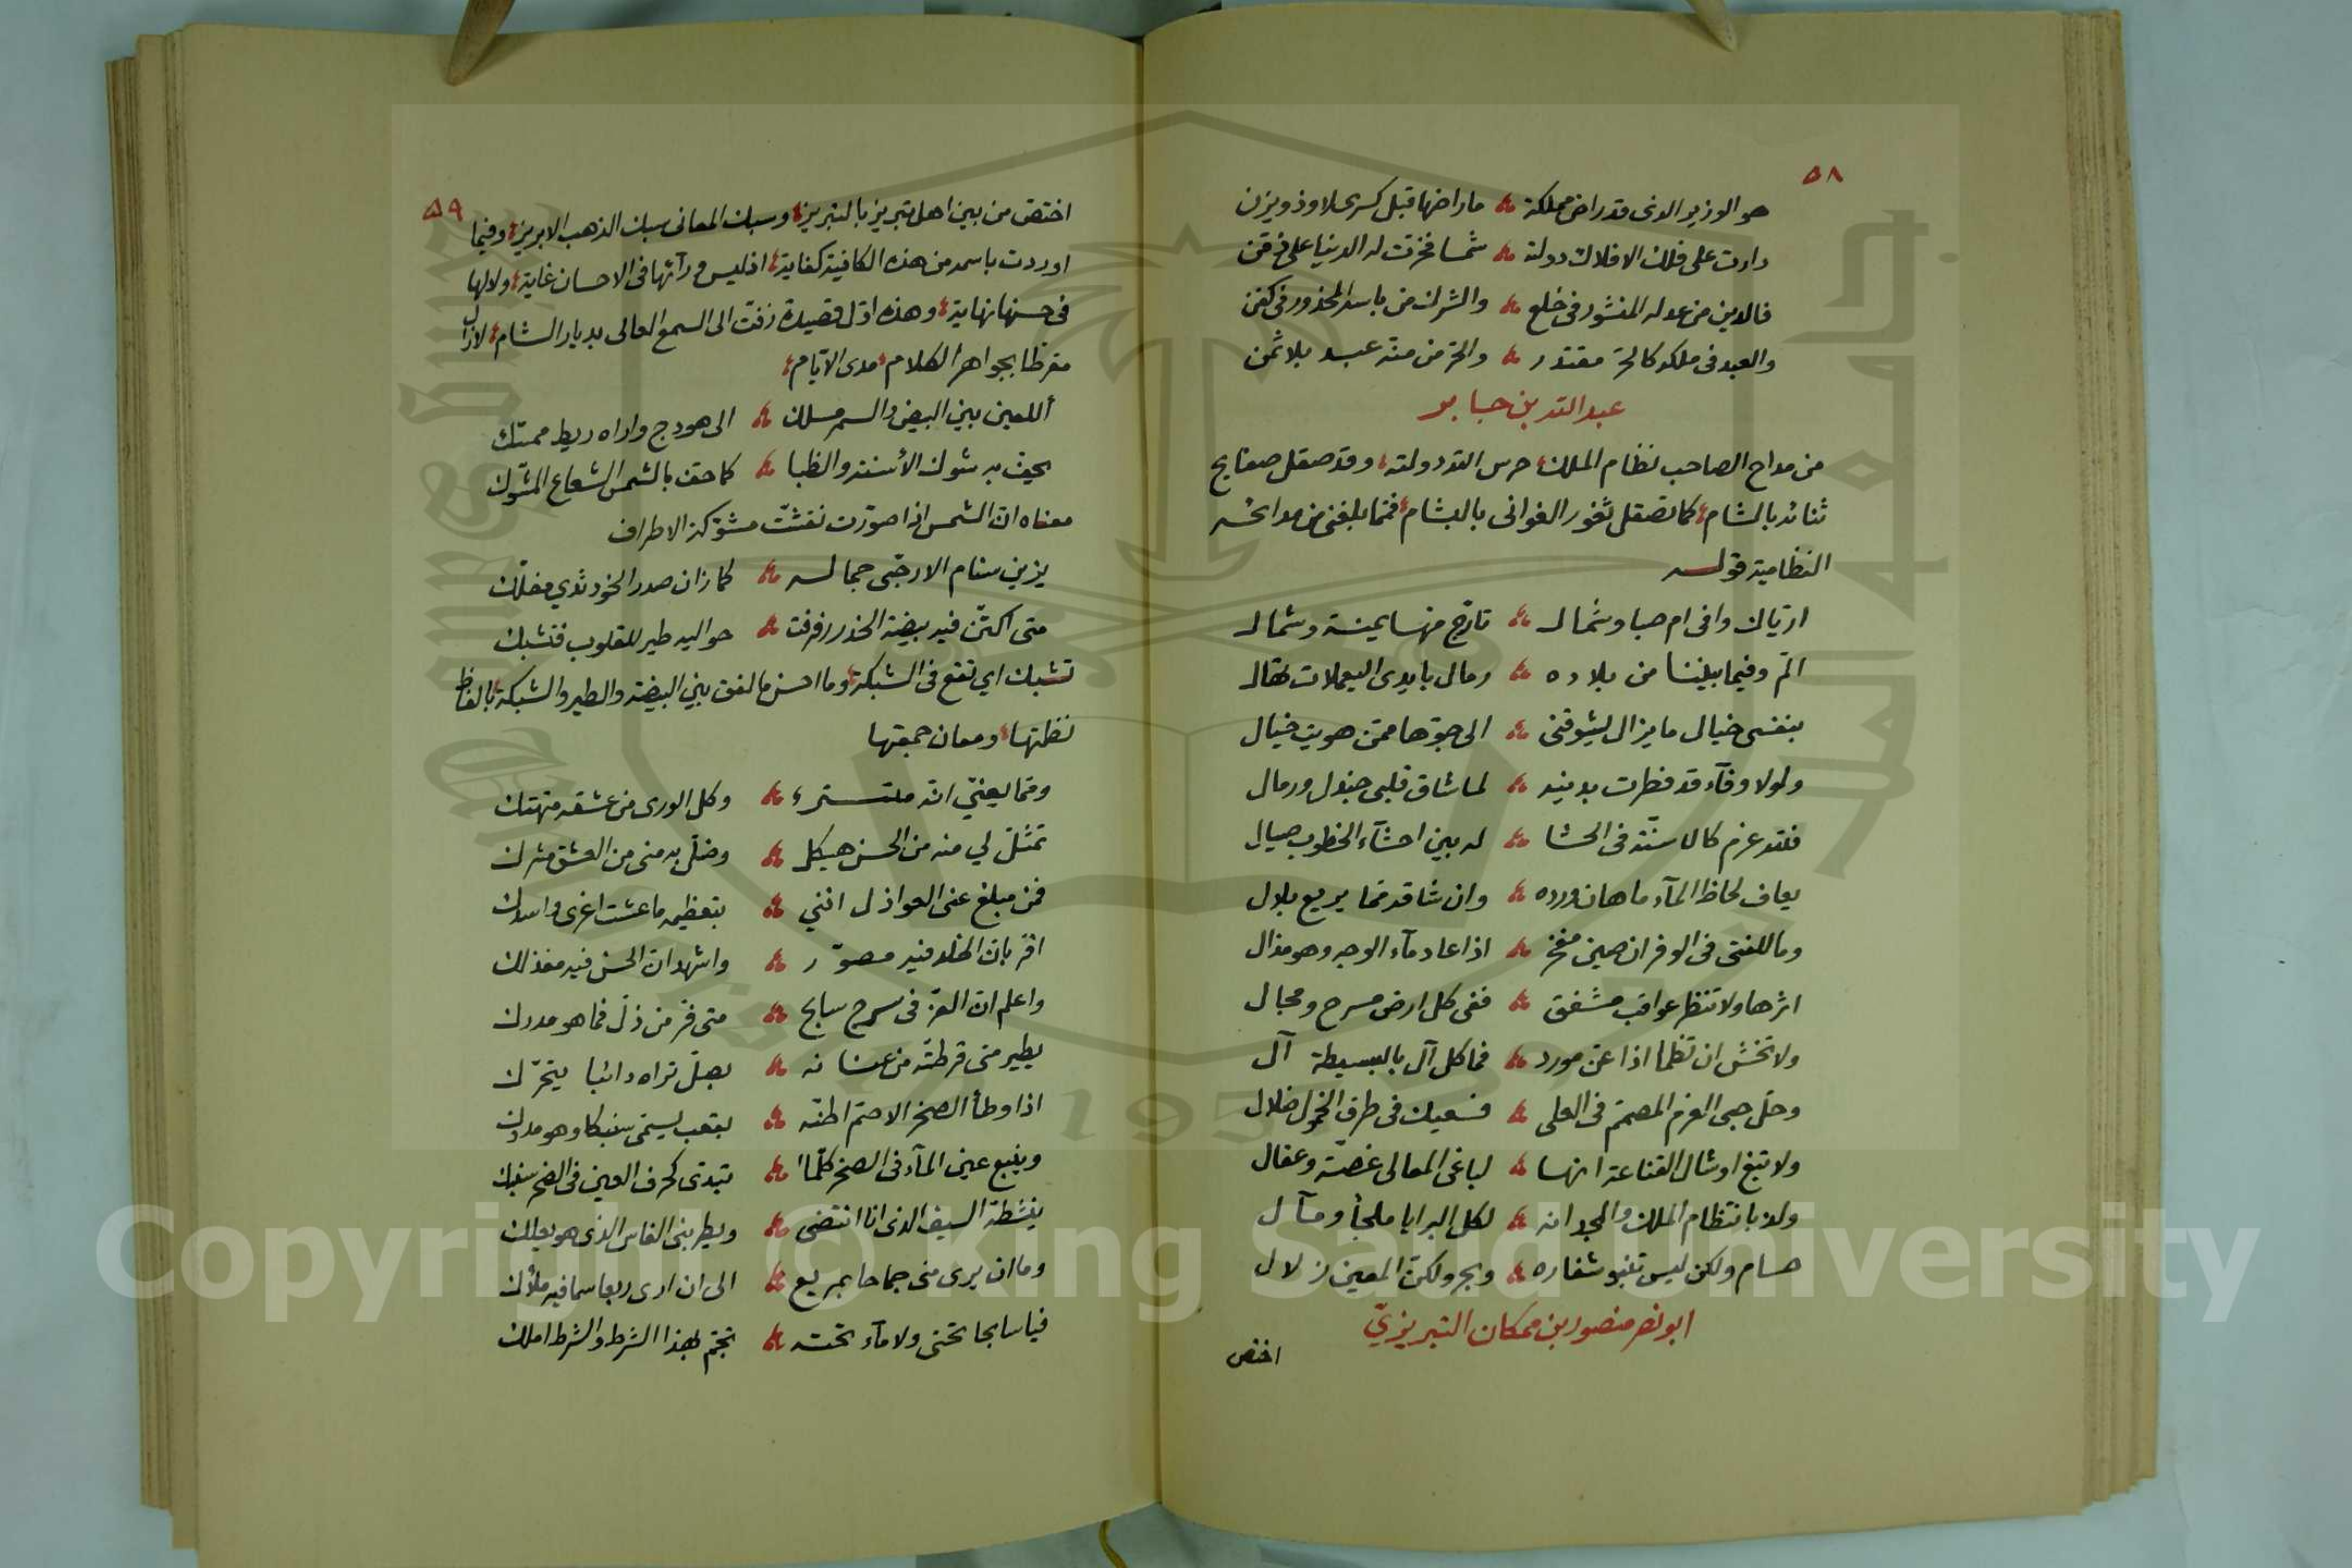 ٥٨
هو الوزير الذى قد راض مملكة ۞ ما راضها قبل كسرى لا وذو يزن
دارت على فلك الافلاك دولته ۞ شمسا فخرت له الدنيا على ذقن
فالدين من عدله المنشور فى خلع ۞ والشرك من باسه المحذور فى كفن
والعبد فى ملكه كالحرّ مقتدر ۞ والحرّ من منّه عبد بلا ثمن
عبد الله بن جابر
من مداح الصاحب نظام الملك حرس الله دولته وقد صقل صفايح
ثنائه بالشام كما تصقل ثغور الغوانى بالبشام فمما بلغنى من مدائحه
النظامية قوله
ارتياك وافى ام صبا وشمال ۞ تارّج منها يمينة وشمال
المّ وفيما بيننا من بلاده ۞ رمال بايدى اليعملات تقال
بنفسى خيال ما يزال يشوقنى ۞ الى جوّها ممّن هويت خيال
ولولا وفآء قد فطرت بدينه ۞ لما شاق قلبى جندل ورمال
فلله عزم كالاسنّة فى الحشا ۞ له بين احشآء الخطوب صيال
يعاف لحاظ المآء ما هان ورده ۞ وان شاقه ممّا يريع بلال
وما للفتى فى الوفر ان صين مفخر ۞ اذا عاد مآء الوجه وهو مذال
اثرها ولا تنظر عواقب مشفق ۞ ففى كل ارض مسرح ومجال
ولا تخش ان تظما اذا عنّ مورد ۞ فما كل آل بالبسيطة آل
وخلّ حجى العزم المصمّم فى العلى ۞ فسعيك فى طرق الخمول ضلال
ولا تبغ اوشال القناعة انها ۞ لباغى المعالى غصّة وعقال
ولذ بانتظام الملك والمجد انه ۞ لكل البرايا ملجأ ومآل
حسام ولكن ليس تنبو شفاره ۞ وبحر ولكنّ المعين زلال
ابو نصر منصور بن ممكان التبريزيّ
اختص
٥٩
اختصّ من بين اهل تبريز بالتبريز وسبك المعانى سبك الذهب الابريز وفيما
اوردت باسمه من هذه الكافية كفاية اذ ليس ورآئها فى الاحسان غاية ولا لها
فى حسنها نهاية وهذه اوّل قصيدة زفت الى السمع العالى بديار الشام لازال
مقرظا بجواهر الكلام مدى الايّام
أللعين بين البيض والسمر مسلك ۞ الى هودج واراه ريط ممسّك
يحيف به شوك الأسنة والظبا ۞ كما حفّ بالشمس الشعاع المشوّك
معناه انّ الشمس اذا صوّرت نقشت مشوّكة الاطراف
يزين سنام الارحبّى جماله ۞ كما زان صدر الخود ثدي مفلّك
متى اكتنّ فيه بيضة الخدر رفرفت ۞ حواليه طير للقلوب فتشبك
تشبك اي تقع فى الشبكة وما احسن ما لفق بين البيضة والطير والشبكة بالفاظ
نظمتها ومعان جمعتها
وممّا يعنيّ انّه متستر ۞ وكل الورى من عشقه متهتك
تمثّل لي منه من الحسن هيكل ۞ وضلّ به منى من العشق مشرك
فمن مبلغ عنى العواذل اننى ۞ بتعظيمه ما عشت اغرى واسدك
اقرّ بانّ الخلد فيه مصوّر ۞ واشهد انّ الحسن فيه مفذلك
واعلم انّ العزّ فى سرج سابح ۞ متى فرّ من ذلّ فما هو مدرك
يطير متى قرطته من عنانه ۞ بصلّ تراه دائبا يتحرّك
اذا وطأ الصخر الاصم اطنّه ۞ بقعب يسمّى سنبكا وهو مدوك
وينبع عين المآء فى الصخر كلّما ۞ تبدى كحرف العين فى الصخر سنبك
ينشطه السيف الذى انا انتضى ۞ ويطربنى الفاس الذى هو يعلك
وما ان يرى منى جماحا بمربع ۞ الى ان ارى ربعا سما فيه ملأك
فيا سابحا تحتى ولا مآء تحته ۞ تجشّم لهذا الشرط والشرط املك
Copyright © King Saud University
1957